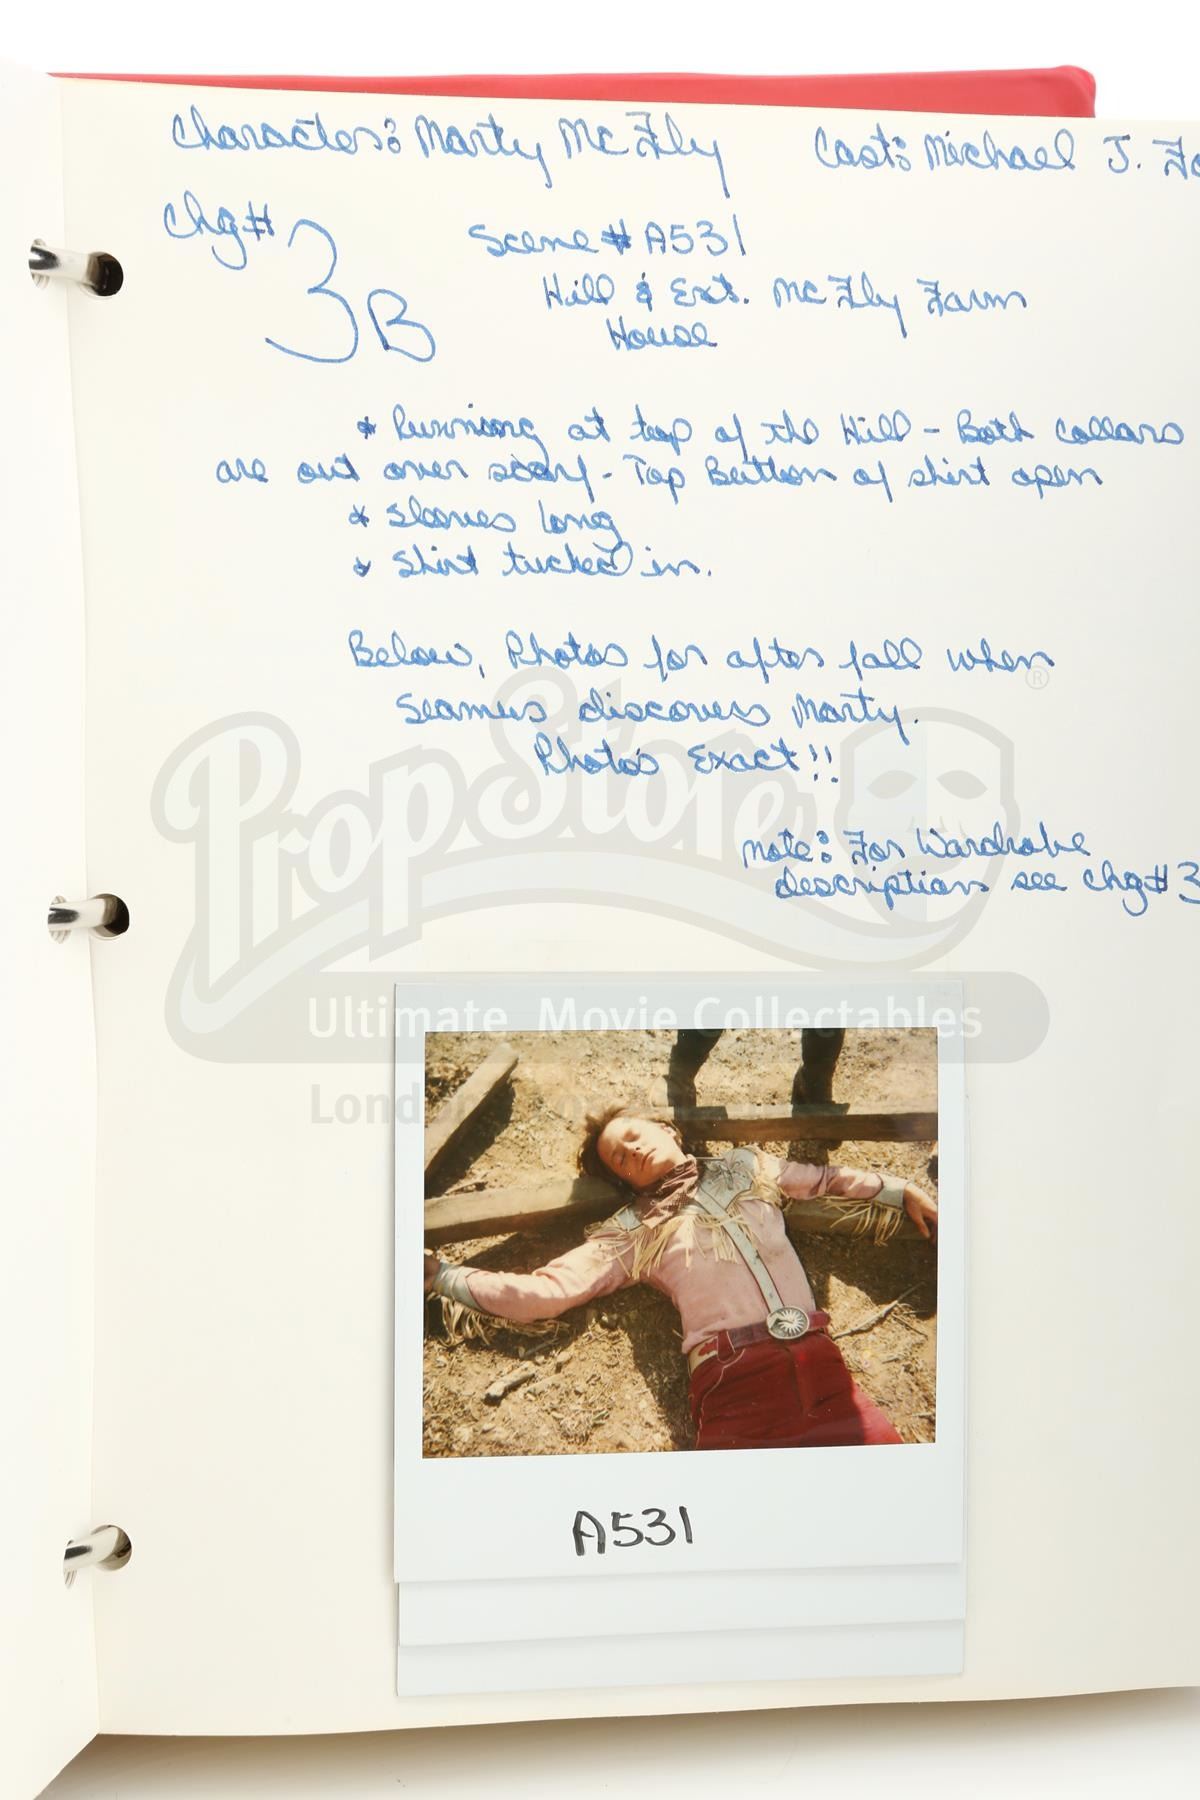 Character: Marty McFly Cast: Michael J. Fo
Chg# 3B
Scene # A531
Hill & Ext. McFly Farm
House
* Running at top of the Hill - Both collars
are out over scarf - Top Button of shirt open
* Sleeves long
* Shirt tucked in.
Below, Photos for after fall when
Seamus discovers Marty.
Photo's Exact!!
note: For Wardrobe
descriptions see chg# 3
PropStore ®
Ultimate Movie Collectables
London
A531